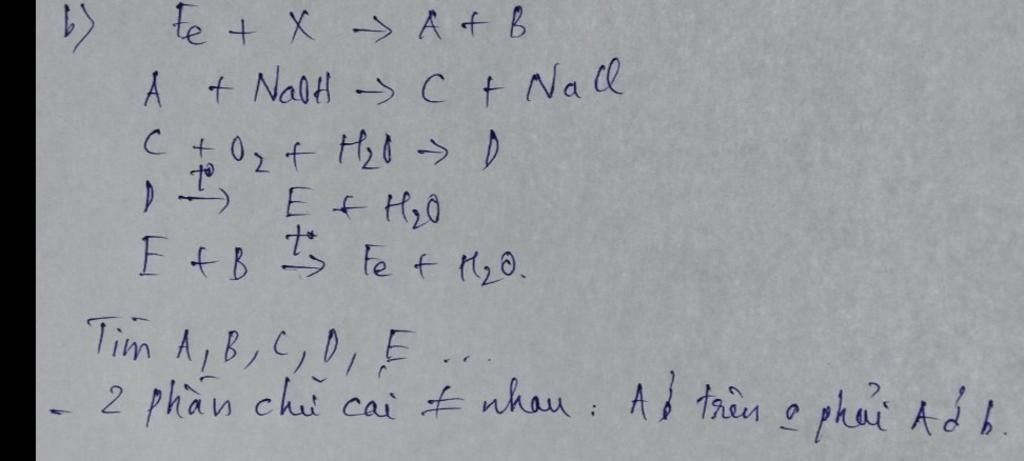 b) Fe + X → A + B
A + NaOH → C + NaCl
C + O₂ + H₂O → D
D t°→ E + H₂O
E + B t°→ Fe + H₂O.
Tìm A, B, C, D, E ...
- 2 phần chữ cái ≠ nhau : A ở trên o phải A ở b.